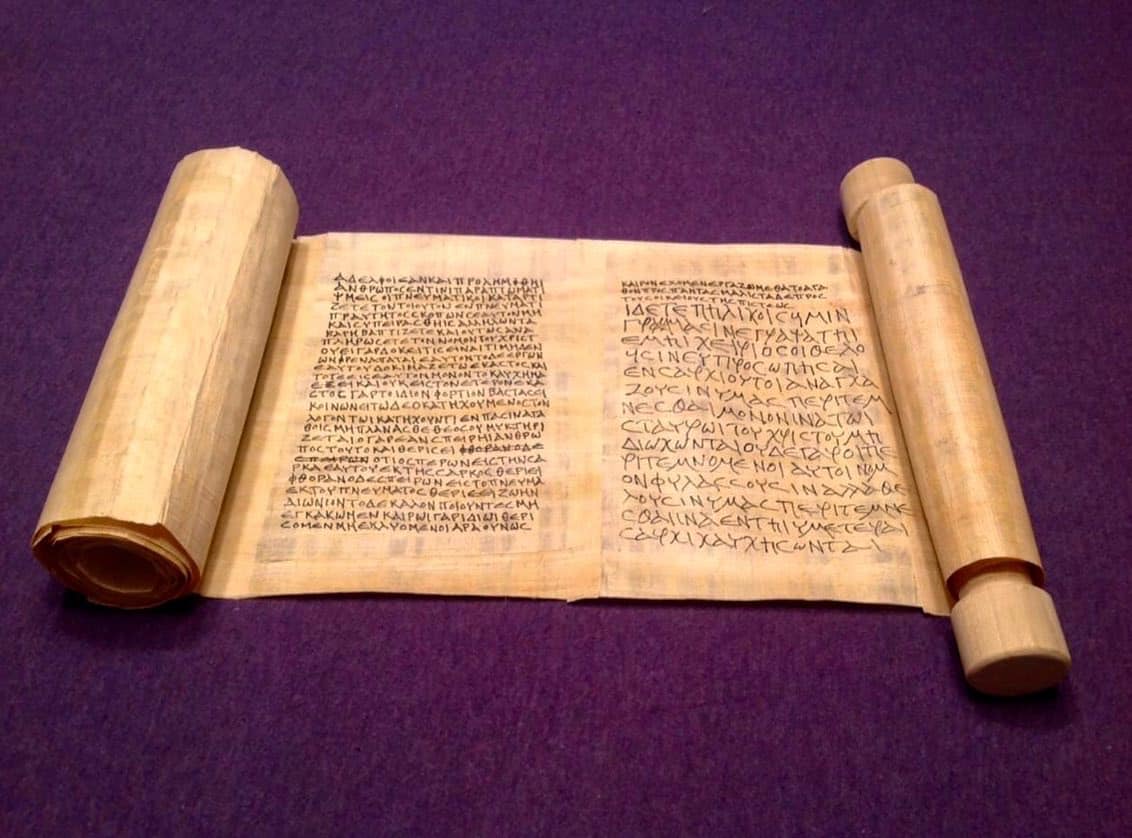 ΑΔΕΛΦΟΙΕΑΝΚΑΙΠΡΟΛΗΜΦΘΗΙ
ΑΝΘΡΩΠΟϹΕΝΤΙΝΙΠΑΡΑΠΤΩΜΑΤΙ
ΥΜΕΙϹΟΙΠΝΕΥΜΑΤΙΚΟΙΚΑΤΑΡΤΙ
ΖΕΤΕΤΟΝΤΟΙΟΥΤΟΝΕΝΠΝΕΥΜΑΤΙ
ΠΡΑΥΤΗΤΟϹϹΚΟΠΩΝϹΕΑΥΤΟΝΜΗ
ΚΑΙϹΥΠΕΙΡΑϹΘΗΙϹΑΛΛΗΛΩΝΤΑ
ΒΑΡΗΒΑϹΤΑΖΕΤΕΚΑΙΟΥΤΩϹΑΝΑ
ΠΛΗΡΩϹΕΤΕΤΟΝΝΟΜΟΝΤΟΥΧΡΙϹΤ
ΟΥΕΙΓΑΡΔΟΚΕΙΤΙϹΕΙΝΑΙΤΙΜΗΔΕΝ
ΩΝΦΡΕΝΑΠΑΤΑΙΕΑΥΤΟΝΤΟΔΕΕΡΓΟΝ
ΕΑΥΤΟΥΔΟΚΙΜΑΖΕΤΩΕΚΑϹΤΟϹΚΑΙ
ΤΟΤΕΕΙϹΕΑΥΤΟΝΜΟΝΟΝΤΟΚΑΥΧΗΜΑ
ΕΞΕΙΚΑΙΟΥΚΕΙϹΤΟΝΕΤΕΡΟΝΕΚΑ
ϹΤΟϹΓΑΡΤΟΙΔΙΟΝΦΟΡΤΙΟΝΒΑϹΤΑϹΕΙ
ΚΟΙΝΩΝΕΙΤΩΔΕΟΚΑΤΗΧΟΥΜΕΝΟϹΤΟΝ
ΛΟΓΟΝΤΩΙΚΑΤΗΧΟΥΝΤΙΕΝΠΑϹΙΝΑΓΑ
ΘΟΙϹΜΗΠΛΑΝΑϹΘΕΘΕΟϹΟΥΜΥΚΤΗΡΙ
ΖΕΤΑΙΟΓΑΡΕΑΝϹΠΕΙΡΗΙΑΝΘΡΩ
ΠΟϹΤΟΥΤΟΚΑΙΘΕΡΙϹΕΙ ΦΘΟΡΑΝΟΔΕ
ΟΤΙΟϹΠΕΡΩΝΕΙϹΤΗΝϹΑ
ΡΚΑΕΑΥΤΟΥΕΚΤΗϹϹΑΡΚΟϹΘΕΡΙϹΕΙ
ΦΘΟΡΑΝΟΔΕϹΠΕΙΡΩΝΕΙϹΤΟΠΝΕΥΜΑ
ΕΚΤΟΥΠΝΕΥΜΑΤΟϹΘΕΡΙϹΕΙΖΩΗΝ
ΑΙΩΝΙΟΝΤΟΔΕΚΑΛΟΝΠΟΙΟΥΝΤΕϹΜΗ
ΕΓΚΑΚΩΜΕΝΚΑΙΡΩΙΓΑΡΙΔΙΩΙΘΕΡΙ
ϹΟΜΕΝΜΗΕΚΛΥΟΜΕΝΟΙΑΡΑΟΥΝΩϹ
ΚΑΙΡΟΝΕΧΟΜΕΝΕΡΓΑΖΩΜΕΘΑΤΟΑΓΑ
ΘΟΝΠΡΟϹΠΑΝΤΑϹΜΑΛΙϹΤΑΔΕΠΡΟϹ
ΤΟΥϹΟΙΚΕΙΟΥϹΤΗϹΠΙϹΤΕΩϹ
ΙΔΕΤΕΠΗΛΙΚΟΙϹΥΜΙΝ
ΓΡΑΜΜΑϹΙΝΕΓΡΑΨΑΤΗΙ
ΕΜΗΙΧΕΙΡΙΟϹΟΙΘΕΛΟ
ΥϹΙΝΕΥΠΡΟϹΩΠΗϹΑΙ
ΕΝϹΑΡΚΙΟΥΤΟΙΑΝΑΓΚΑ
ΖΟΥϹΙΝΥΜΑϹΠΕΡΙΤΕΜ
ΝΕϹΘΑΙΜΟΝΟΝΙΝΑΤΩΙ
ϹΤΑΥΡΩΙΤΟΥΧΡΙϹΤΟΥΜΗ
ΔΙΩΚΩΝΤΑΙΟΥΔΕΓΑΡΟΙΠΕ
ΡΙΤΕΜΝΟΜΕΝΟΙΑΥΤΟΙΝΟΜ
ΟΝΦΥΛΑϹϹΟΥϹΙΝΑΛΛΑΘΕ
ΛΟΥϹΙΝΥΜΑϹΠΕΡΙΤΕΜΝΕ
ϹΘΑΙΙΝΑΕΝΤΗΙΥΜΕΤΕΡΑΙ
ϹΑΡΚΙΚΑΥΧΗϹΩΝΤΑΙ